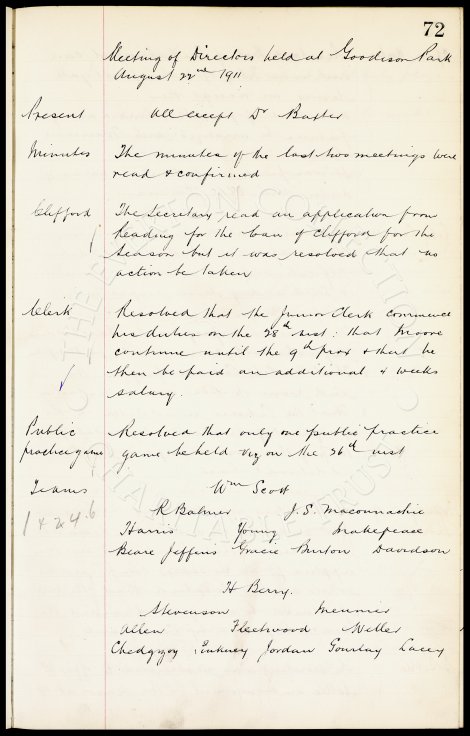 72
Meeting of Directors held at Goodison Park
August 22nd 1911
Present All except Dr Baxter
Minutes The minutes of the last two meetings were
read & confirmed
Clifford The Secretary read an application from
Reading for the loan of Clifford for the
season but it was resolved that no
action be taken
Clerk Resolved that the Junior Clerk commence
his duties on the 28th inst: that Moore
continue until the 9th prox & that he
then be paid an additional 4 weeks
salary.
Public Resolved that only one public practice
practice game game be held viz on the 26th inst
Teams Wm Scott
R Balmer J. S. Maconnachie
Harris Young Makepeace
Beare Jefferis Gracie Burton Davidson
H Berry.
Stevenson Meunier
Allen Fleetwood Weller
Chedgzoy Pinkney Jordan Gourlay Lacey
THE EVERTON COLLECTION
CHARITABLE TRUST